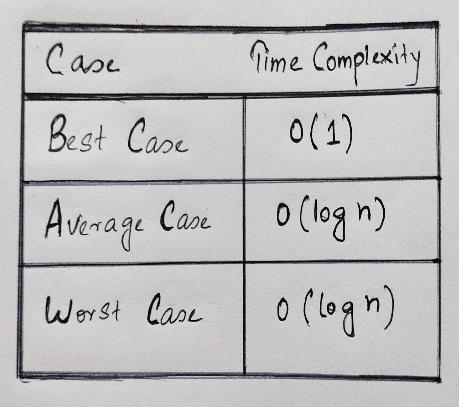 Case Time Complexity
Best Case O(1)
Average Case O(log n)
Worst Case O(log n)